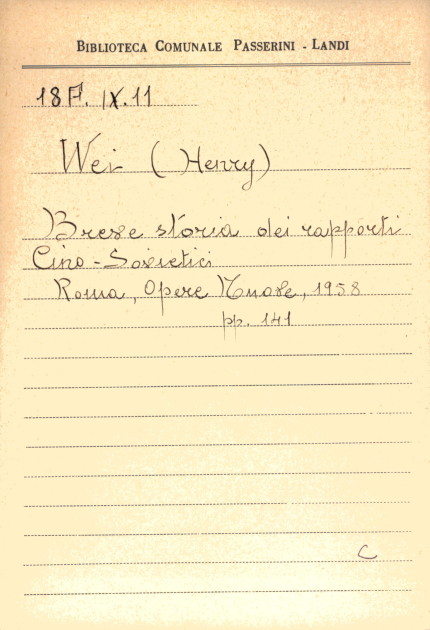 BIBLIOTECA COMUNALE PASSERINI - LANDI
18 F. IX. 11
Wei (Henry)
Breve storia dei rapporti
Cino-Sovietici
Roma, Opere Nuove, 1958
pp. 141
C